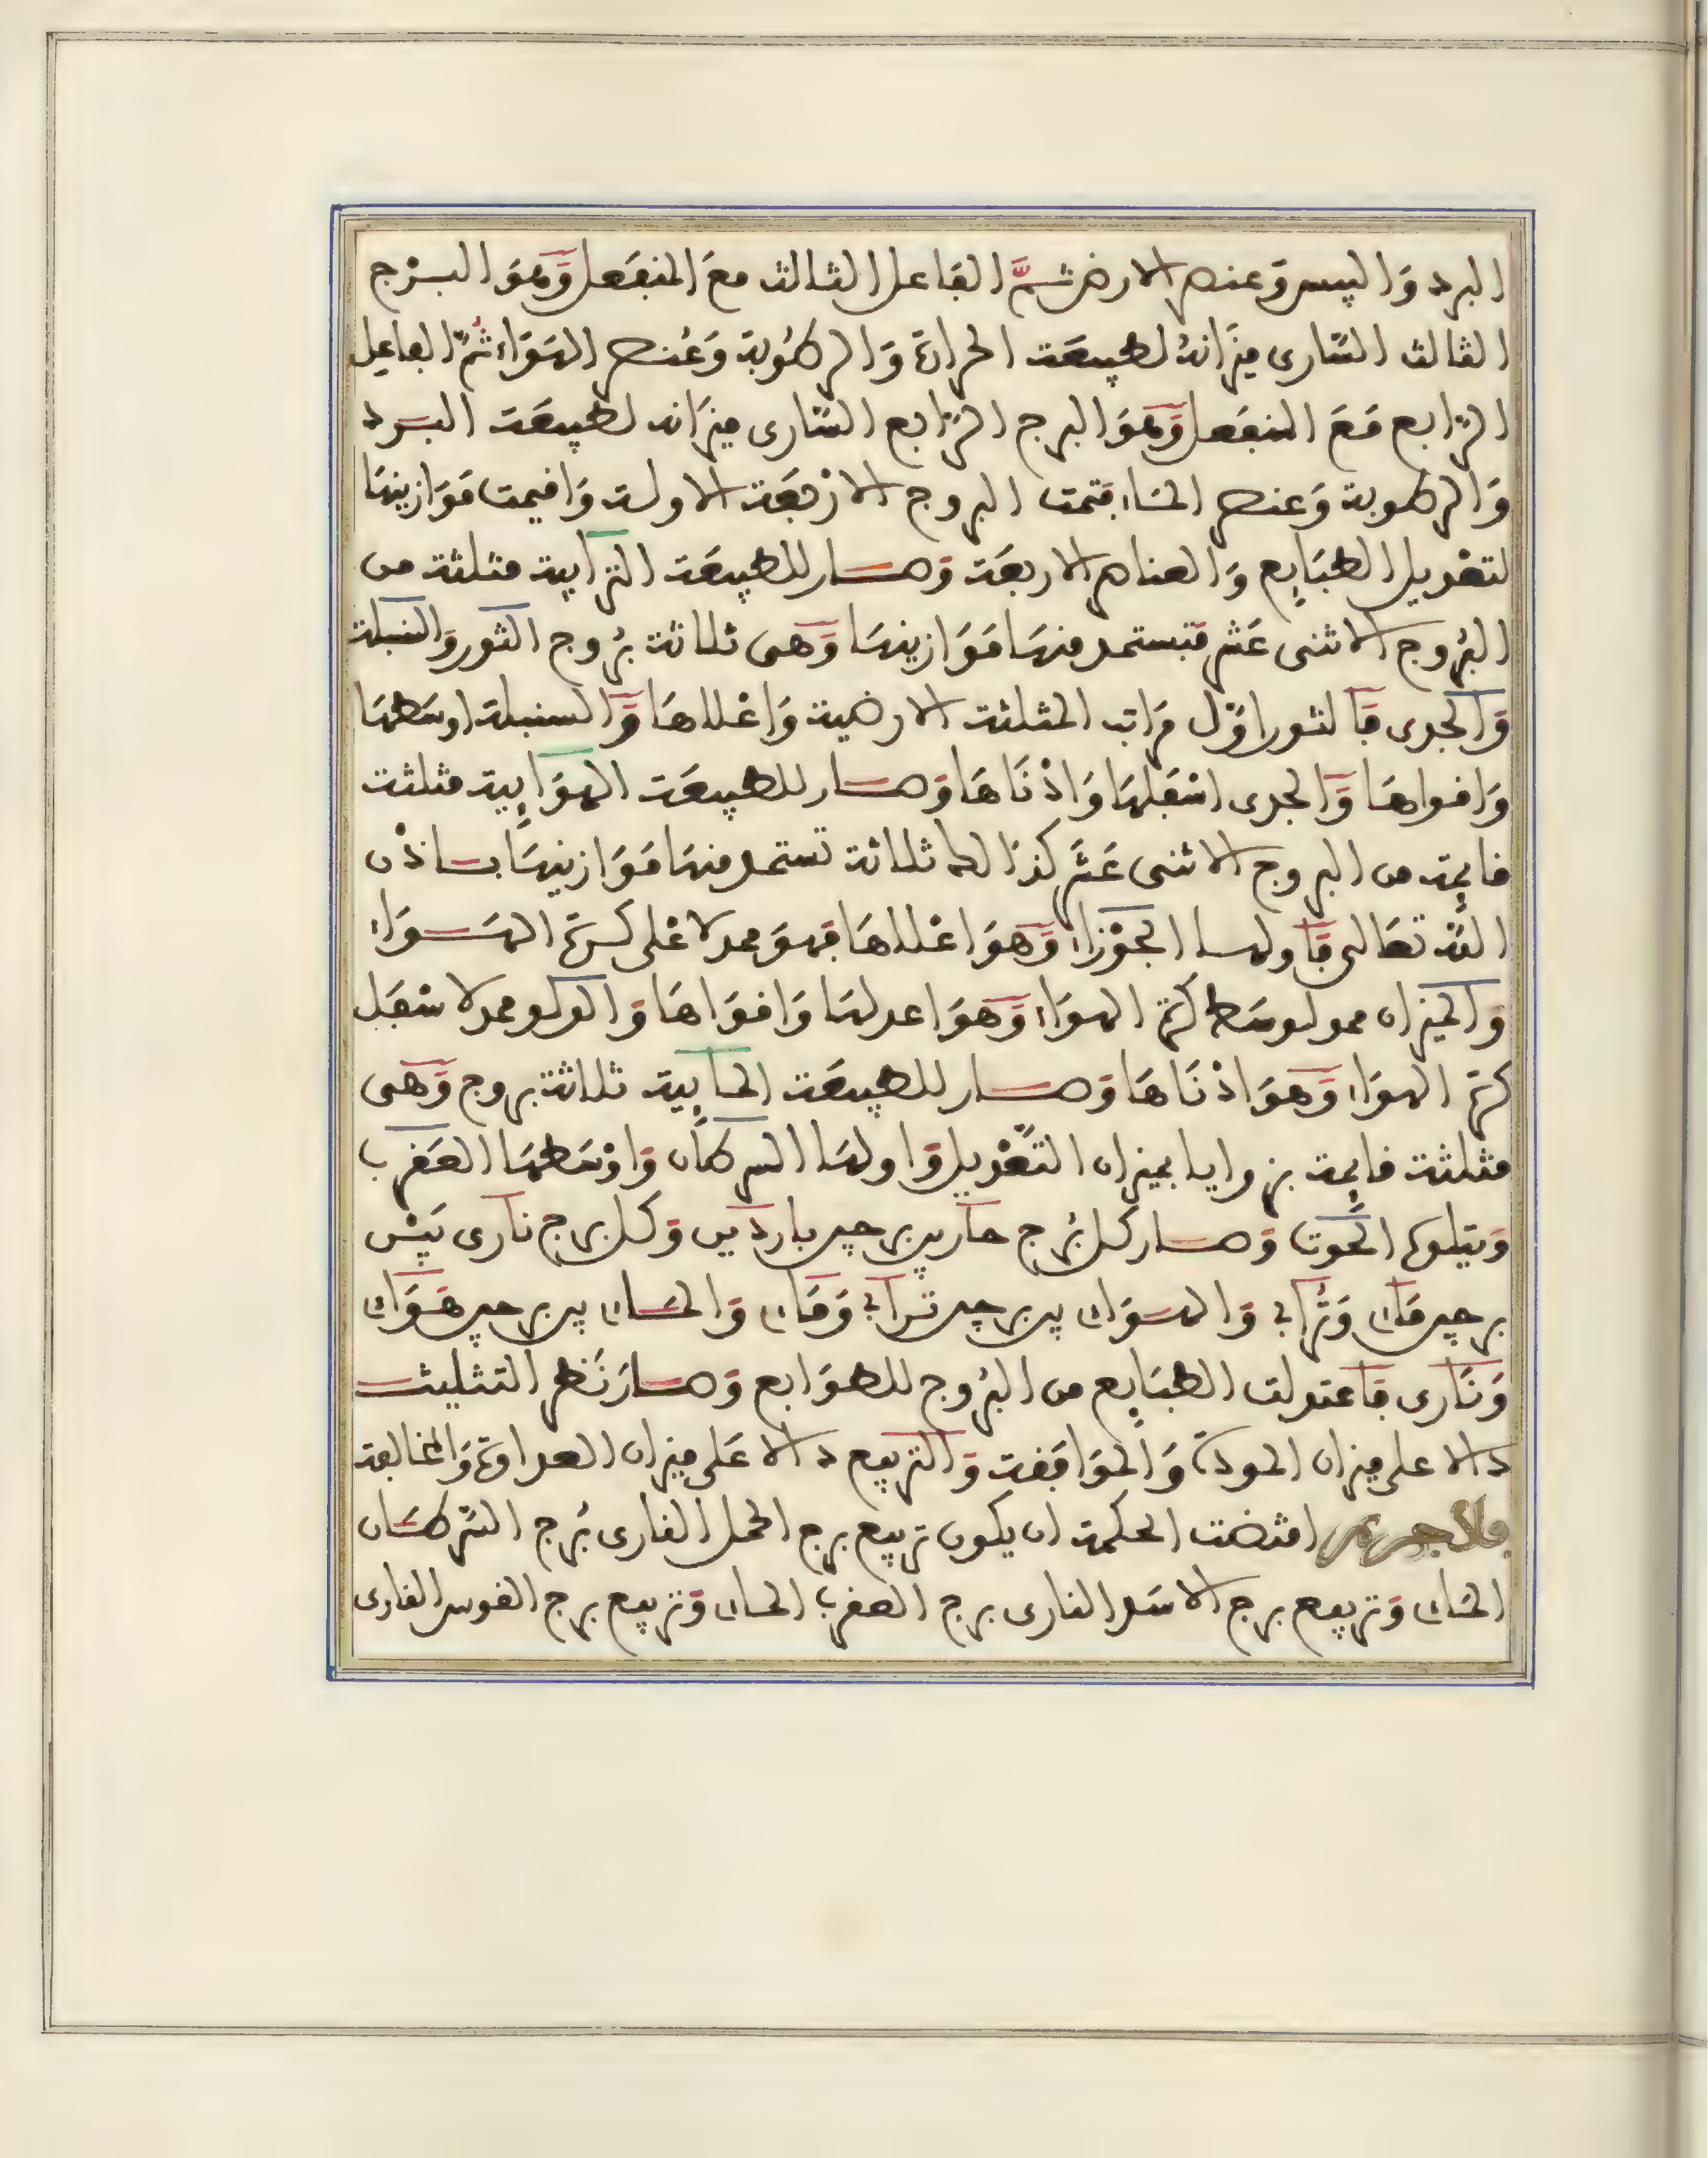 البرد وَاليبس وَعنصر الارض ثمَّ الفاعل الثالث معَ المنفعَل وَّهوَ البرْج
الثالث السّارى ميزَانهُ لطبيعَة الحرارة وَالرطُوبة وَعُنصر الهَوَاء ثُمّ الفاعِل
الرّابع مَعَ المنفعَل وَّهوَ البرج الرّابع السّارى ميزَانه لطبيعَة البرد
وَالرطوبة وَعنصر المَاء فتمت البروج الارْبعَة الاولة وَاقيمت مَوَازينهَا
لتعْديل الطبَايِع وَالعناصر الاربعَة وَصار للطبيعَة الترابية مثلثة من
البُروج الاثنى عَشر فتستمد منهَا مَوَازينهَا وَّهى ثلاثة بُروج الثور وَالسنبلة
وَالجدى فَالثور اوَّل مَراتب المثلثة الارضية وَاعْلاهَا وَّالسنبلة اوسَطهَا
وَاقواهَا وَّالجدى اسْفلهَا وَادْنَاهَا وَصار للطبيعَة الهوَايِية مثلثة
قايمة من البروج الاثنى عَشر كذَالك ثلاثة تستمد منهَا مَوَازينهَا باذْن
اللّه تعَالى فَاولها الجَوْزاء وَّهوَ اعْلاهَا فهوَ ممد لاعْلى كرة الهَوَاء
وَالميزان ممد لوسَط كرة الهوَاء وَّهوَ اعدلهَا وَاقوَاهَا وَالدلو ممد لاسْفل
كرة الهوَاء وَّهوَ ادْنَاهَا وَصار للطبيعَة المايِية ثلاثة بروج وَّهى
مثلثة قايمة بزوايا بميزان التَّعْديل وَاولهَا السرطان وَاوْسَطهَا العَقرب
وَيتلوه الحُوت وَصار كل بُرج حار بين برجين باردَين وَكل برج نارى بَيْن
برجين مَاءى وَتُرابى وَالهوَاءى بين برجين ترابى وَمَاءى وَالمَاءى بين برجين هَوَاءى
وَنَارى فَاعتدلت الطبَايِع من البُروج للطوَابع وَصارَ نَظر التثليث
دالا على ميزان المودة وَالموَافقة وَالتربيع دالا عَلى ميزان العداوة وَالمخالفة
فلاجرم اقتضت الحكمة ان يكون تربيع برج الحمل النارى بُرج السّرطَان
المَاءى وَتربيع برج الاسَد النارى برج العقرب الماءى وَتربيع برج القوس النارى